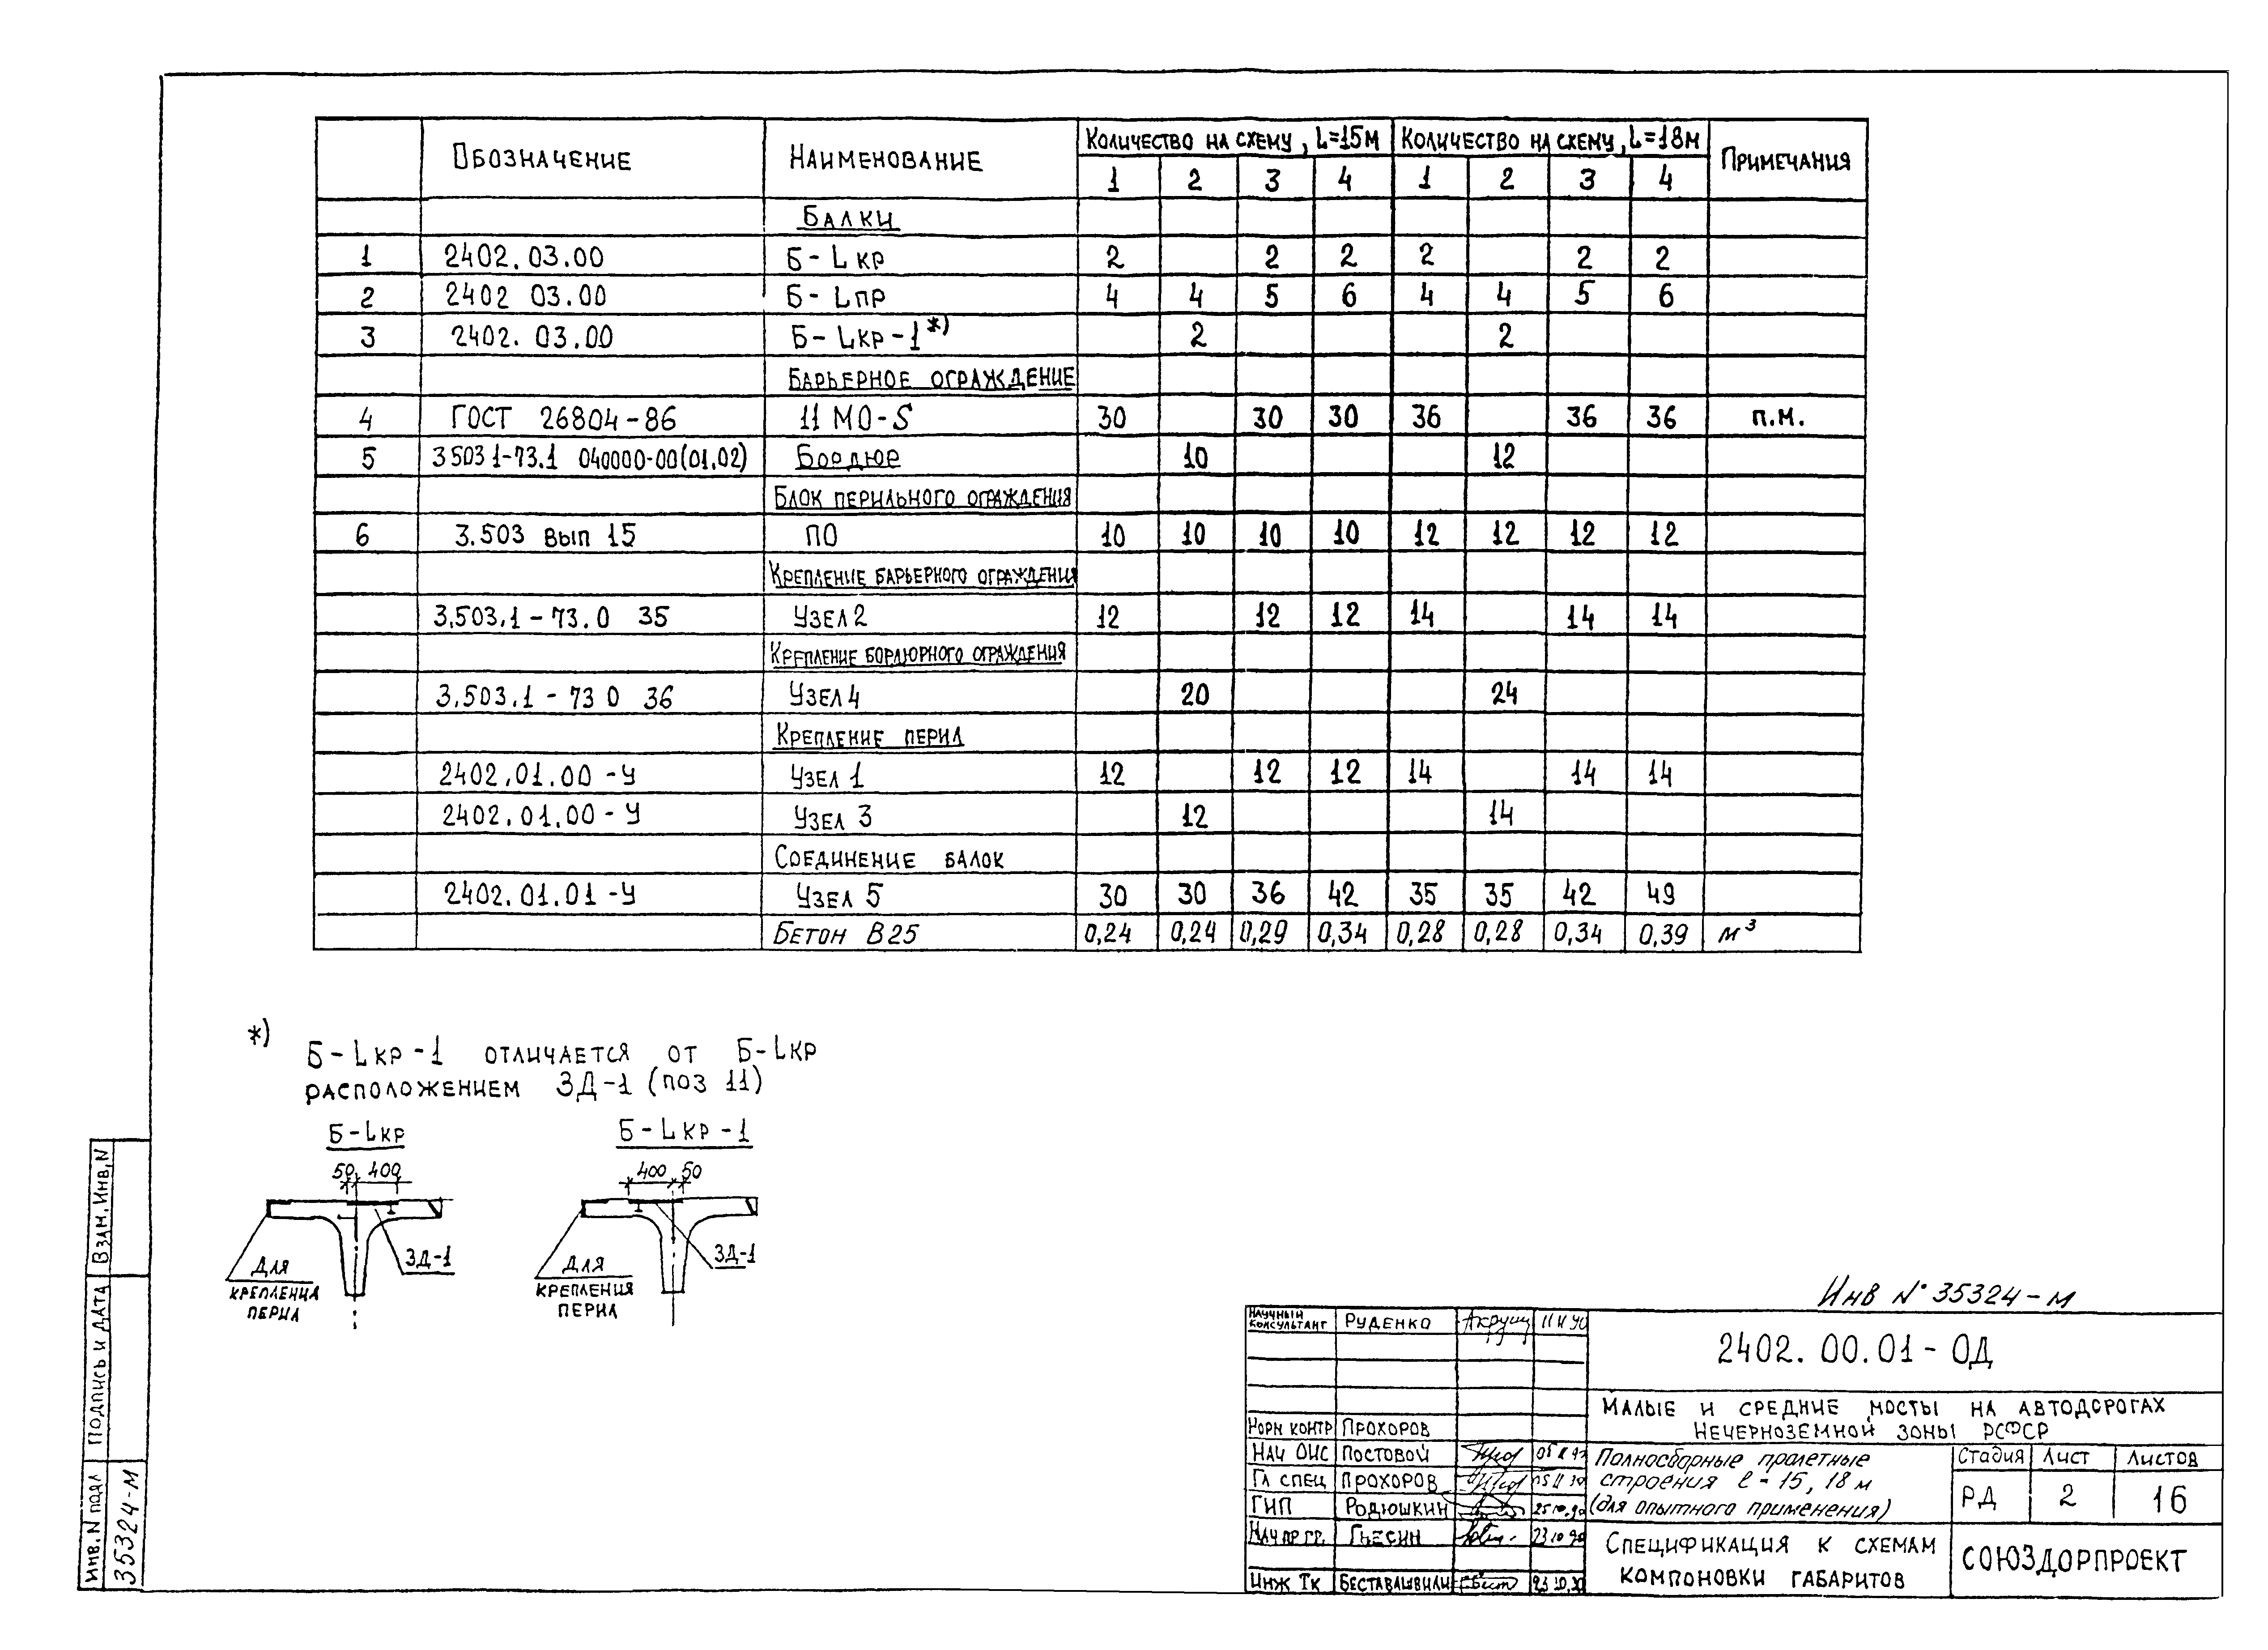 ОБОЗНАЧЕНИЕ НАИМЕНОВАНИЕ КОЛИЧЕСТВО НА СХЕМУ, L=15М КОЛИЧЕСТВО НА СХЕМУ, L=18М ПРИМЕЧАНИЯ
1 2 3 4 1 2 3 4
БАЛКИ
1 2402.03.00 Б-Lкр 2 2 2 2 2 2
2 2402 03.00 Б-Lпр 4 4 5 6 4 4 5 6
3 2402.03.00 Б-Lкр-1*) 2 2
БАРЬЕРНОЕ ОГРАЖДЕНИЕ
4 ГОСТ 26804-86 11 МО-S 30 30 30 36 36 36 п.м.
5 35031-73.1 040000-00(01,02) БОРДЮР 10 12
БЛОК ПЕРИЛЬНОГО ОГРАЖДЕНИЯ
6 3.503 вып 15 ПО 10 10 10 10 12 12 12 12
КРЕПЛЕНИЕ БАРЬЕРНОГО ОГРАЖДЕНИЯ
3.503.1-73.0 35 УЗЕЛ 2 12 12 12 14 14 14
КРЕПЛЕНИЕ БОРДЮРНОГО ОГРАЖДЕНИЯ
3.503.1-73 0 36 УЗЕЛ 4 20 24
КРЕПЛЕНИЕ ПЕРИЛ
2402.01.00-У УЗЕЛ 1 12 12 12 14 14 14
2402.01.00-У УЗЕЛ 3 12 14
СОЕДИНЕНИЕ БАЛОК
2402.01.01-У УЗЕЛ 5 30 30 36 42 35 35 42 49
БЕТОН В25 0,24 0,24 0,29 0,34 0,28 0,28 0,34 0,39 м³
*)
Б-Lкр-1 ОТЛИЧАЕТСЯ ОТ Б-Lкр
РАСПОЛОЖЕНИЕМ ЗД-1 (ПОЗ 11)
Б-Lкр Б-Lкр-1
50 400 400 50
ЗД-1 ЗД-1
ДЛЯ ДЛЯ
КРЕПЛЕНИЯ КРЕПЛЕНИЯ
ПЕРИЛ ПЕРИЛ
ВЗАМ.ИНВ.N
ПОДПИСЬ И ДАТА
ИНВ.N ПОДЛ
35324-М
Инв № 35324-м
НАУЧНЫЙ КОНСУЛЬТАНТ РУДЕНКО
2402.00.01-ОД
МАЛЫЕ И СРЕДНИЕ МОСТЫ НА АВТОДОРОГАХ
НЕЧЕРНОЗЕМНОЙ ЗОНЫ РСФСР
НОРМ КОНТР ПРОХОРОВ
НАЧ ОИС ПОСТОВОЙ
ГЛ СПЕЦ ПРОХОРОВ
ГИП РОДЮШКИН 25 10.90
НАЧ ПР ГР. ГЬЕСИН 23 10 90
ИНЖ ТК БЕСТАВАШВИЛИ 23 10.90
Полносборные пролетные
строения l=15, 18 м
(для опытного применения)
СТАДИЯ ЛИСТ ЛИСТОВ
РД 2 16
СПЕЦИФИКАЦИЯ К СХЕМАМ
КОМПОНОВКИ ГАБАРИТОВ
СОЮЗДОРПРОЕКТ